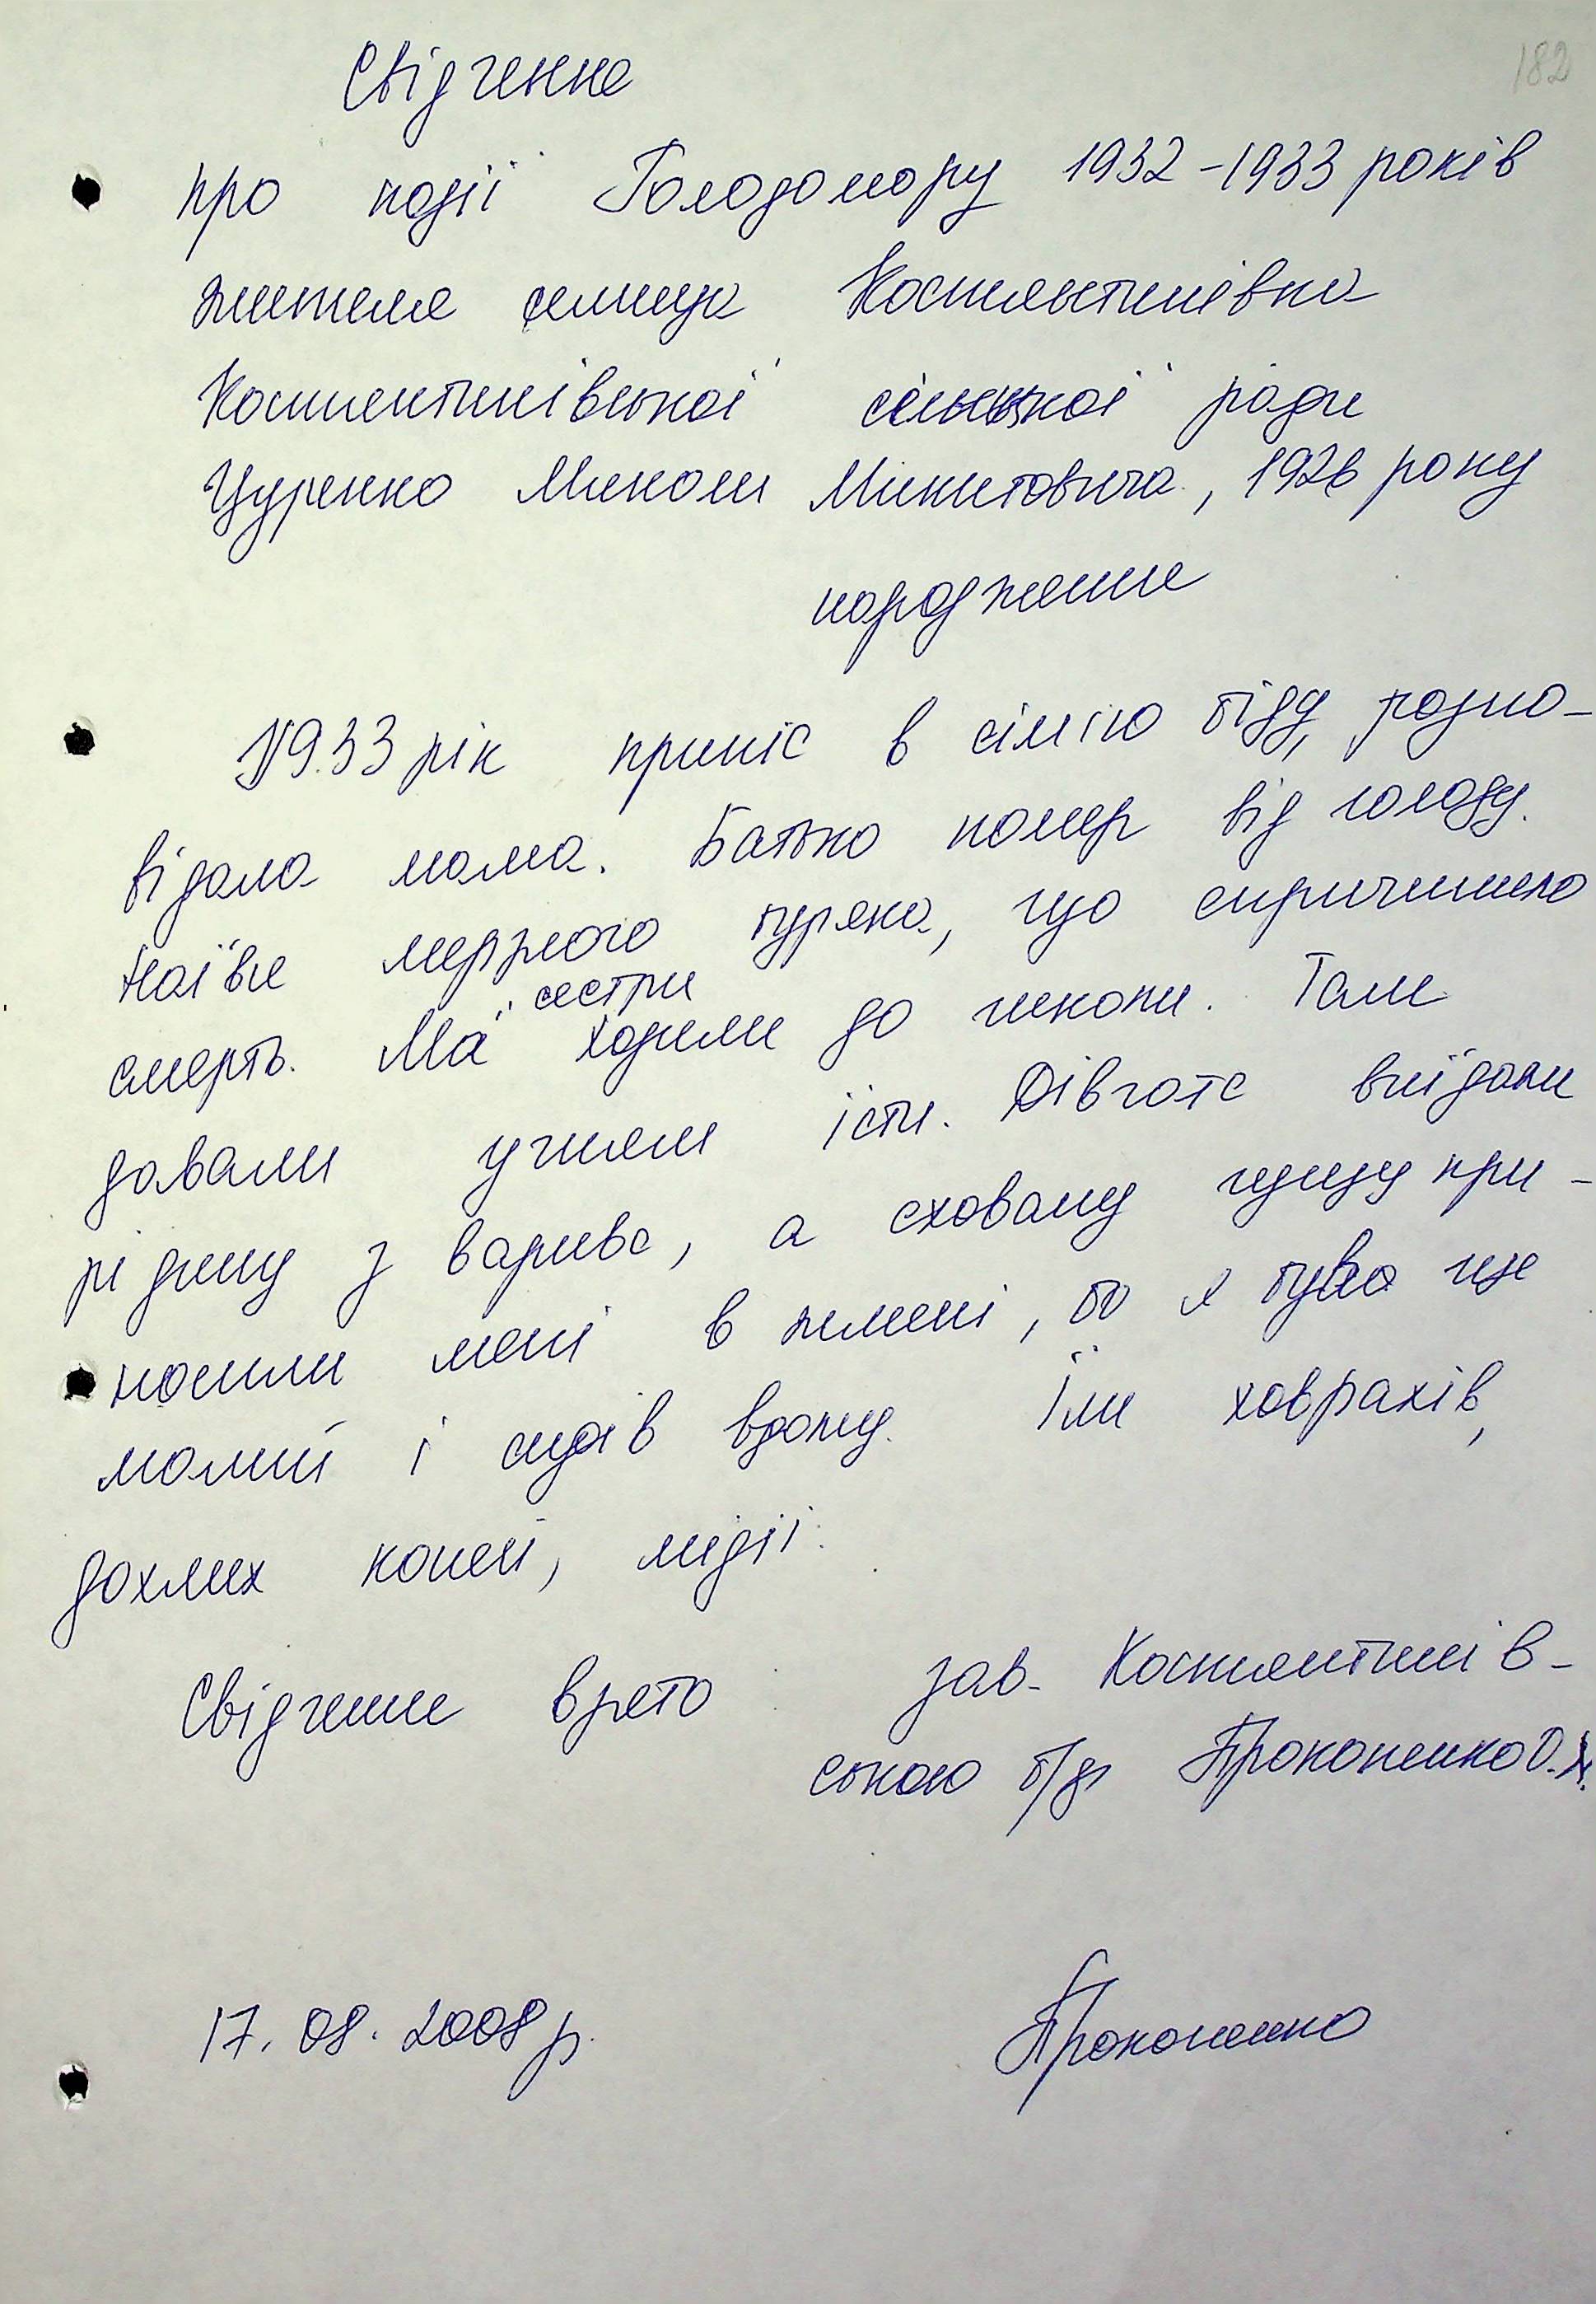 182
Свідчення
про події Голодомору 1932-1933 років
жителя селища Костянтинівка
Костянтинівської сільської ради
Цуренко Миколи Микитовича, 1926 року
народження
1933 рік приніс в сім'ю біду, розпо-
відала мама. Батько помер від голоду.
Наївся мерзлого буряка, що спричинило
смерть. Мої сестри ходили до школи. Там
давали учням їсти. Дівчата виїдали
рідину з варива, а сховану гущу при-
носили мені в жмені, бо я був ще
малий і сидів вдому. Їли ховрахів,
дохлих коней, мідії.
Свідчення взято зав. Костянтинів-
ською б/ф Прокопенко О.Х.
17.08.2008 р. Прокопенко